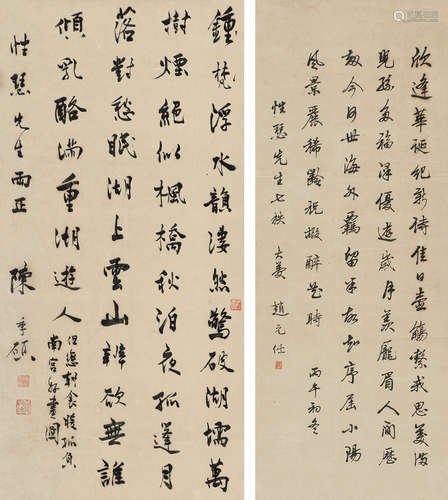 欣逢華誕紀新儔佳日壺觴繫我思美滿
兒孫多福澤優遊歲月羨龐眉人間歷
劫今何世海外羈留序屆小陽
風景麗稀齡祝嘏醉花時 丙午初冬
性慧先生七秩大慶 趙元任
鐘梵浮水韻淒然驚破湖堧萬
樹煙絕似楓橋秋泊夜孤蓬月
落對愁眠湖上雲山欲無誰
傾乳酪滿重湖遊人
但朝食時孤負
南宮好畫圖
性慧先生兩正 陳季碩